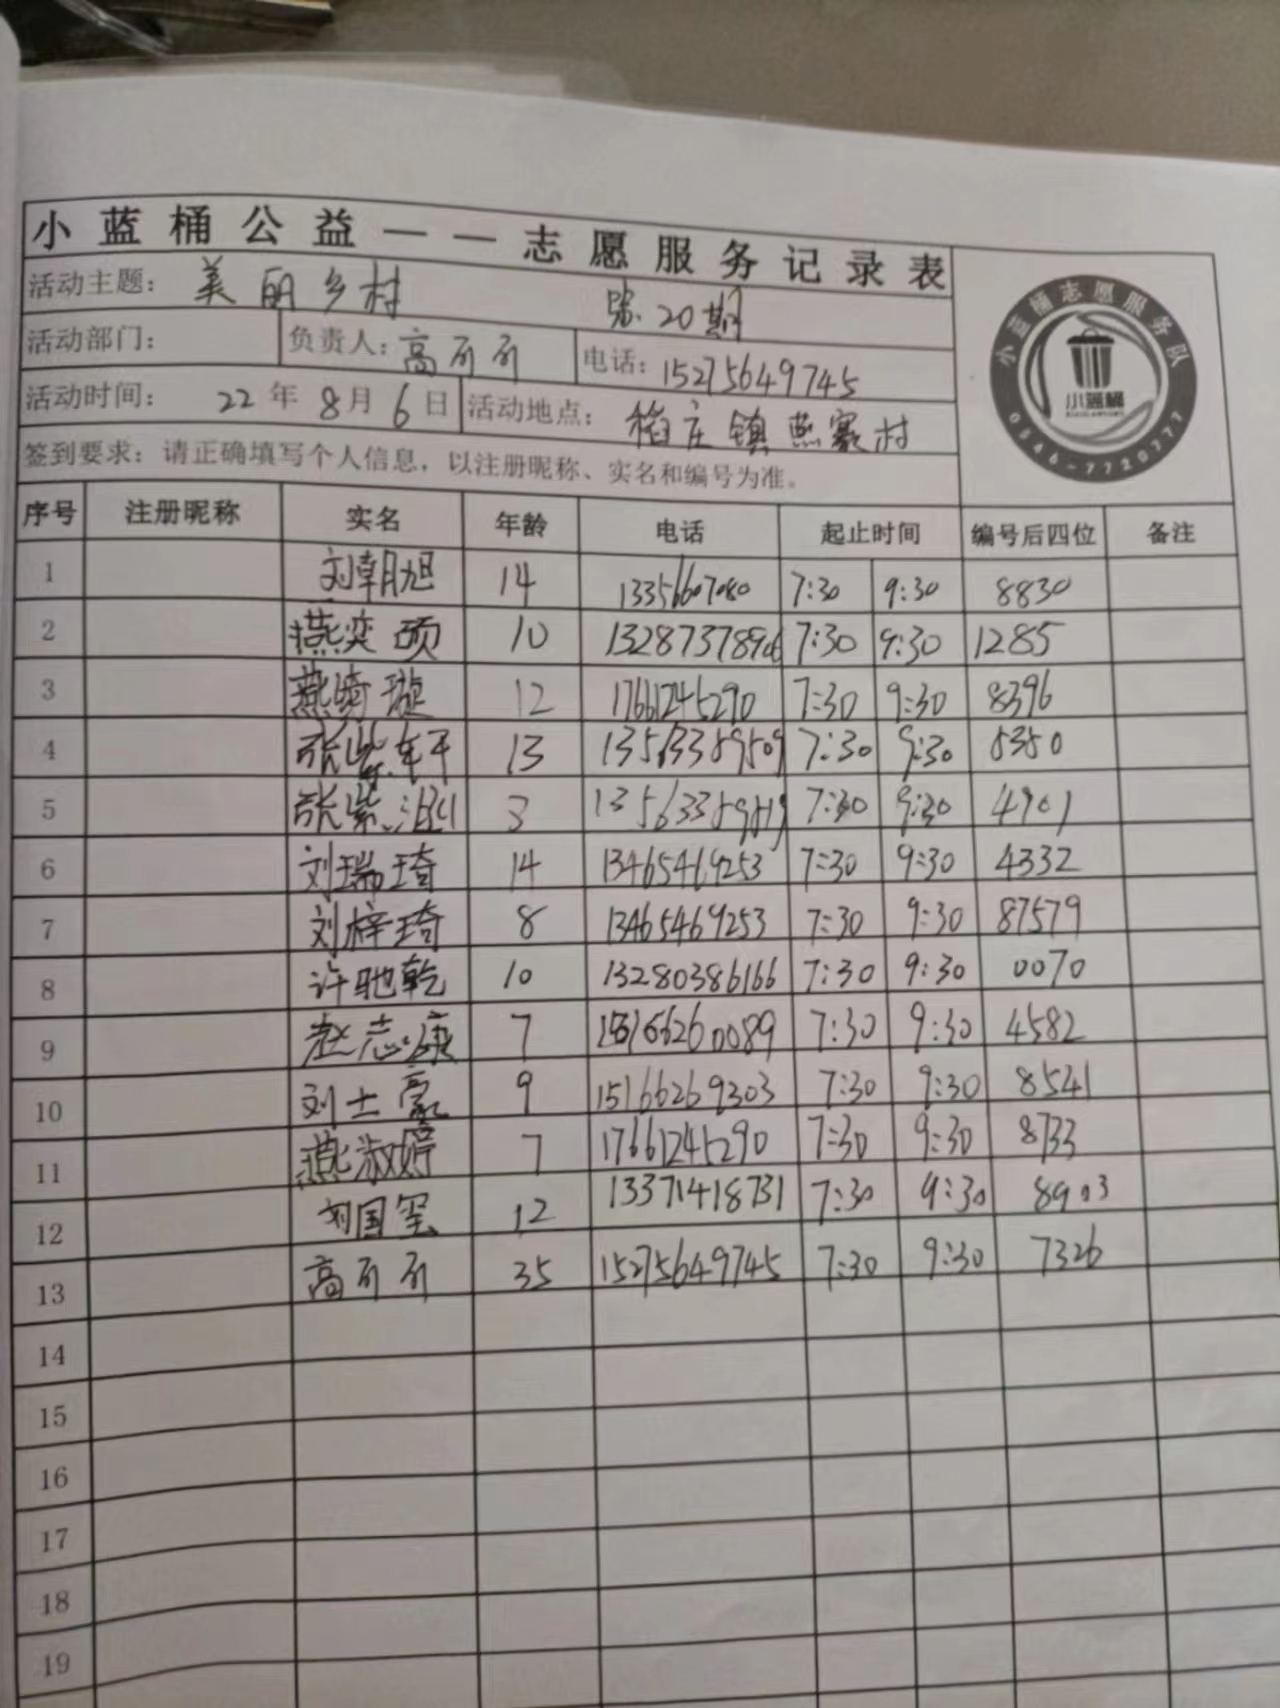 小蓝桶公益——志愿服务记录表
活动主题： 美丽乡村 第20期
活动部门： 负责人：高 电话：15275649745
活动时间： 22年8月6日 活动地点： 庄镇燕家村
签到要求：请正确填写个人信息，以注册昵称、实名和编号为准。
小蓝桶志愿服务队
小蓝桶
0546-7720777
序号 注册昵称 实名 年龄 电话 起止时间 编号后四位 备注
1 刘朝旭 14 13356607080 7:30 9:30 8830
2 燕奕硕 10 7:30 9:30 1285
3 燕绮璇 12 17661245290 7:30 9:30 8396
4 张紫轩 13 7:30 9:30 8380
5 张紫 3 7:30 9:30 4901
6 刘瑞琦 14 13465469253 7:30 9:30 4332
7 刘梓琦 8 13465469253 7:30 9:30 87579
8 许驰乾 10 13280386166 7:30 9:30 0070
9 赵志康 7 7:30 9:30 4582
10 刘士豪 9 15166269303 7:30 9:30 8541
11 燕淑婷 7 17661245290 7:30 9:30 8733
12 刘国玺 12 13371418731 7:30 9:30 8903
13 高 35 15275649745 7:30 9:30 7326
14
15
16
17
18
19